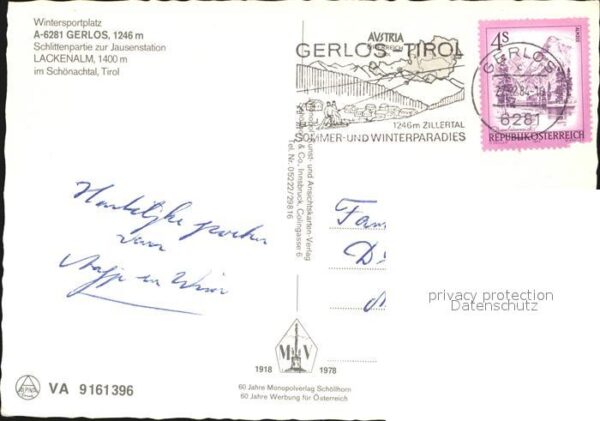 Wintersportplatz
A-6281 GERLOS, 1246 m
Schlittenpartie zur Jausenstation
LACKENALM, 1400 m
im Schönachtal, Tirol
AUSTRIA
ÖSTERREICH
GERLOS-TIROL
1246m ZILLERTAL
SOMMER-UND WINTERPARADIES
4S
ALMSEE
REPUBLIK ÖSTERREICH
GERLOS
6281
Kunst- und Ansichtskarten-Verlag
& Co., Innsbruck, Colingasse 6
Tel. Nr. 05222/29816
Hartelijke groeten
van
en
Fam
privacy protection
Datenschutz
M V
1918 1978
60 Jahre Monopolverlag Schöllhorn
60 Jahre Werbung für Österreich
ALPINA
VA 9161396